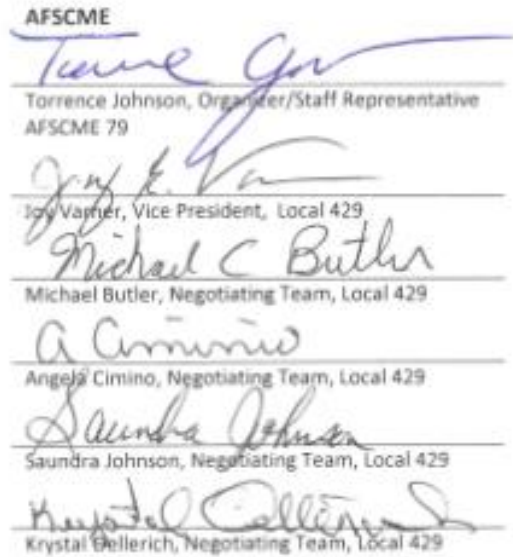 AFSCME
Torrence Johnson, Organizer/Staff Representative
AFSCME 79
Joy E. Varner
Joy Varner, Vice President, Local 429
Michael C Butler
Michael Butler, Negotiating Team, Local 429
A Cimino
Angela Cimino, Negotiating Team, Local 429
Saundra Johnson
Saundra Johnson, Negotiating Team, Local 429
Krystal Dellerich
Krystal Dellerich, Negotiating Team, Local 429